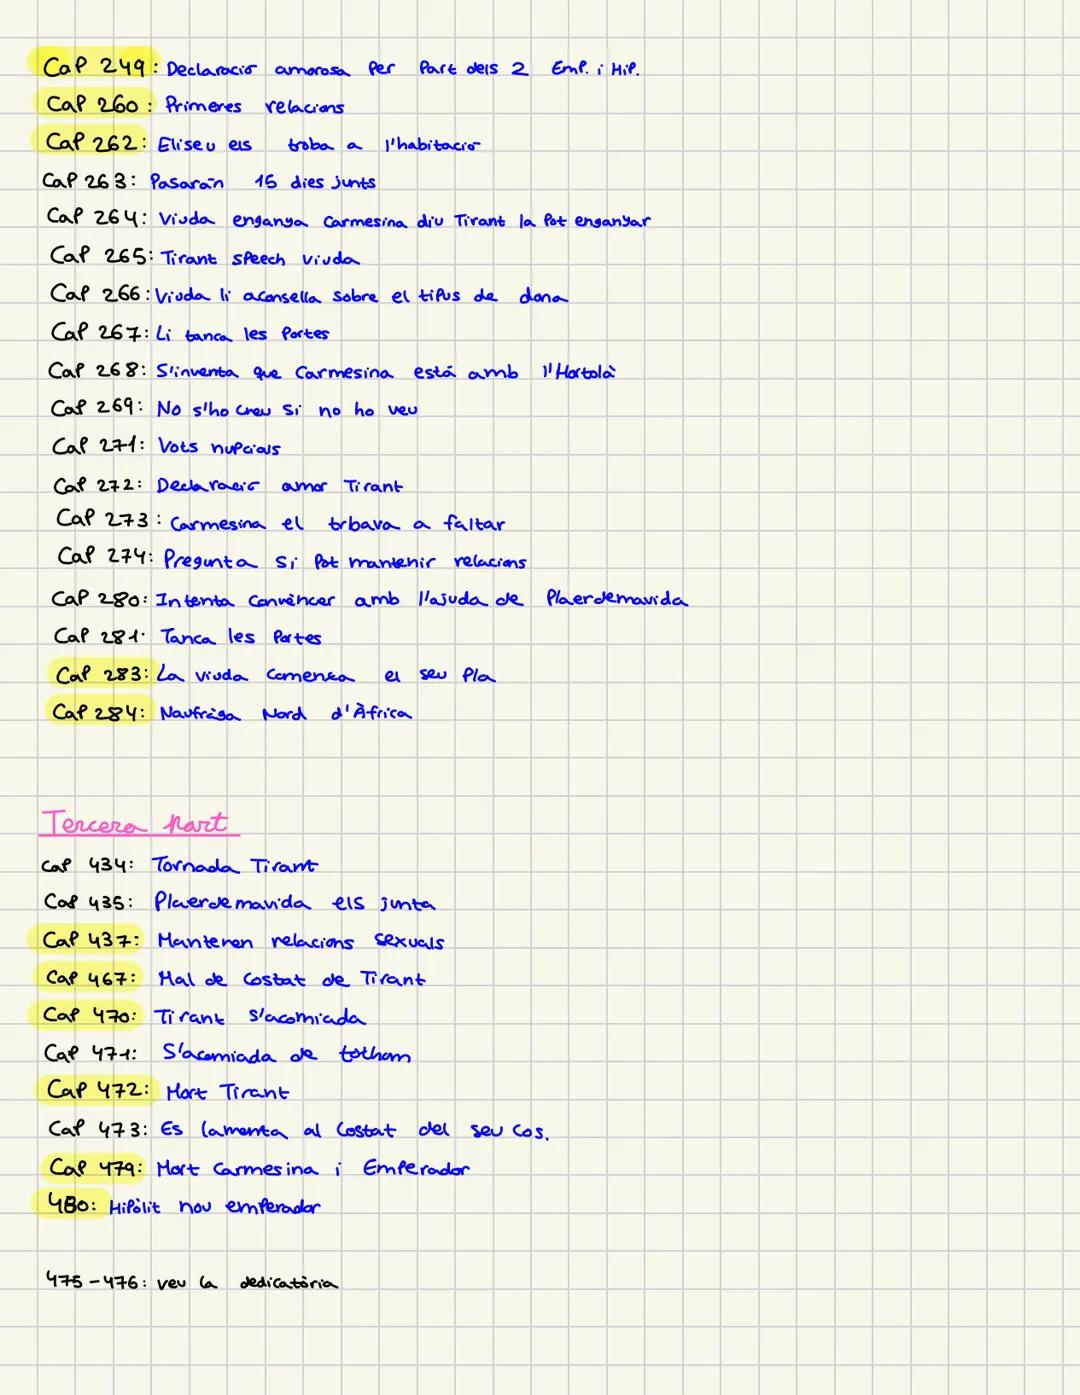 Cap 249: Declaració amorosa per part dels 2 Emp. i Hip.
Cap 260: Primeres relacions
Cap 262: Eliseu els troba a l'habitació
Cap 263: Pasaran 15 dies junts
Cap 264: Viuda enganya Carmesina diu Tirant la pot enganyar
Cap 265: Tirant speech viuda
Cap 266: Viuda li aconsella sobre el tipus de dona
Cap 267: Li tanca les portes
Cap 268: S'inventa que Carmesina está amb l'Hortolà
Cap 269: No s'ho creu si no ho veu
Cap 271: Vots nupcials
Cap 272: Declaració amor Tirant
Cap 273: Carmesina el trbava a faltar
Cap 274: Pregunta si pot mantenir relacions
Cap 280: Intenta convèncer amb l'ajuda de Plaerdemavida
Cap 281: Tanca les portes
Cap 283: La viuda comença el seu pla
Cap 284: Naufràga Nord d'Àfrica
Tercera part
Cap 434: Tornada Tirant
Cap 435: Plaerdemavida els junta
Cap 437: Mantenen relacions sexuals
Cap 467: Mal de costat de Tirant
Cap 470: Tirant s'acomiada
Cap 471: S'acomiada de tothom
Cap 472: Mort Tirant
Cap 473: Es lamenta al costat del seu cos.
Cap 479: Mort Carmesina i Emperador
480: Hipòlit nou emperador
475-476: veu la dedicatòria